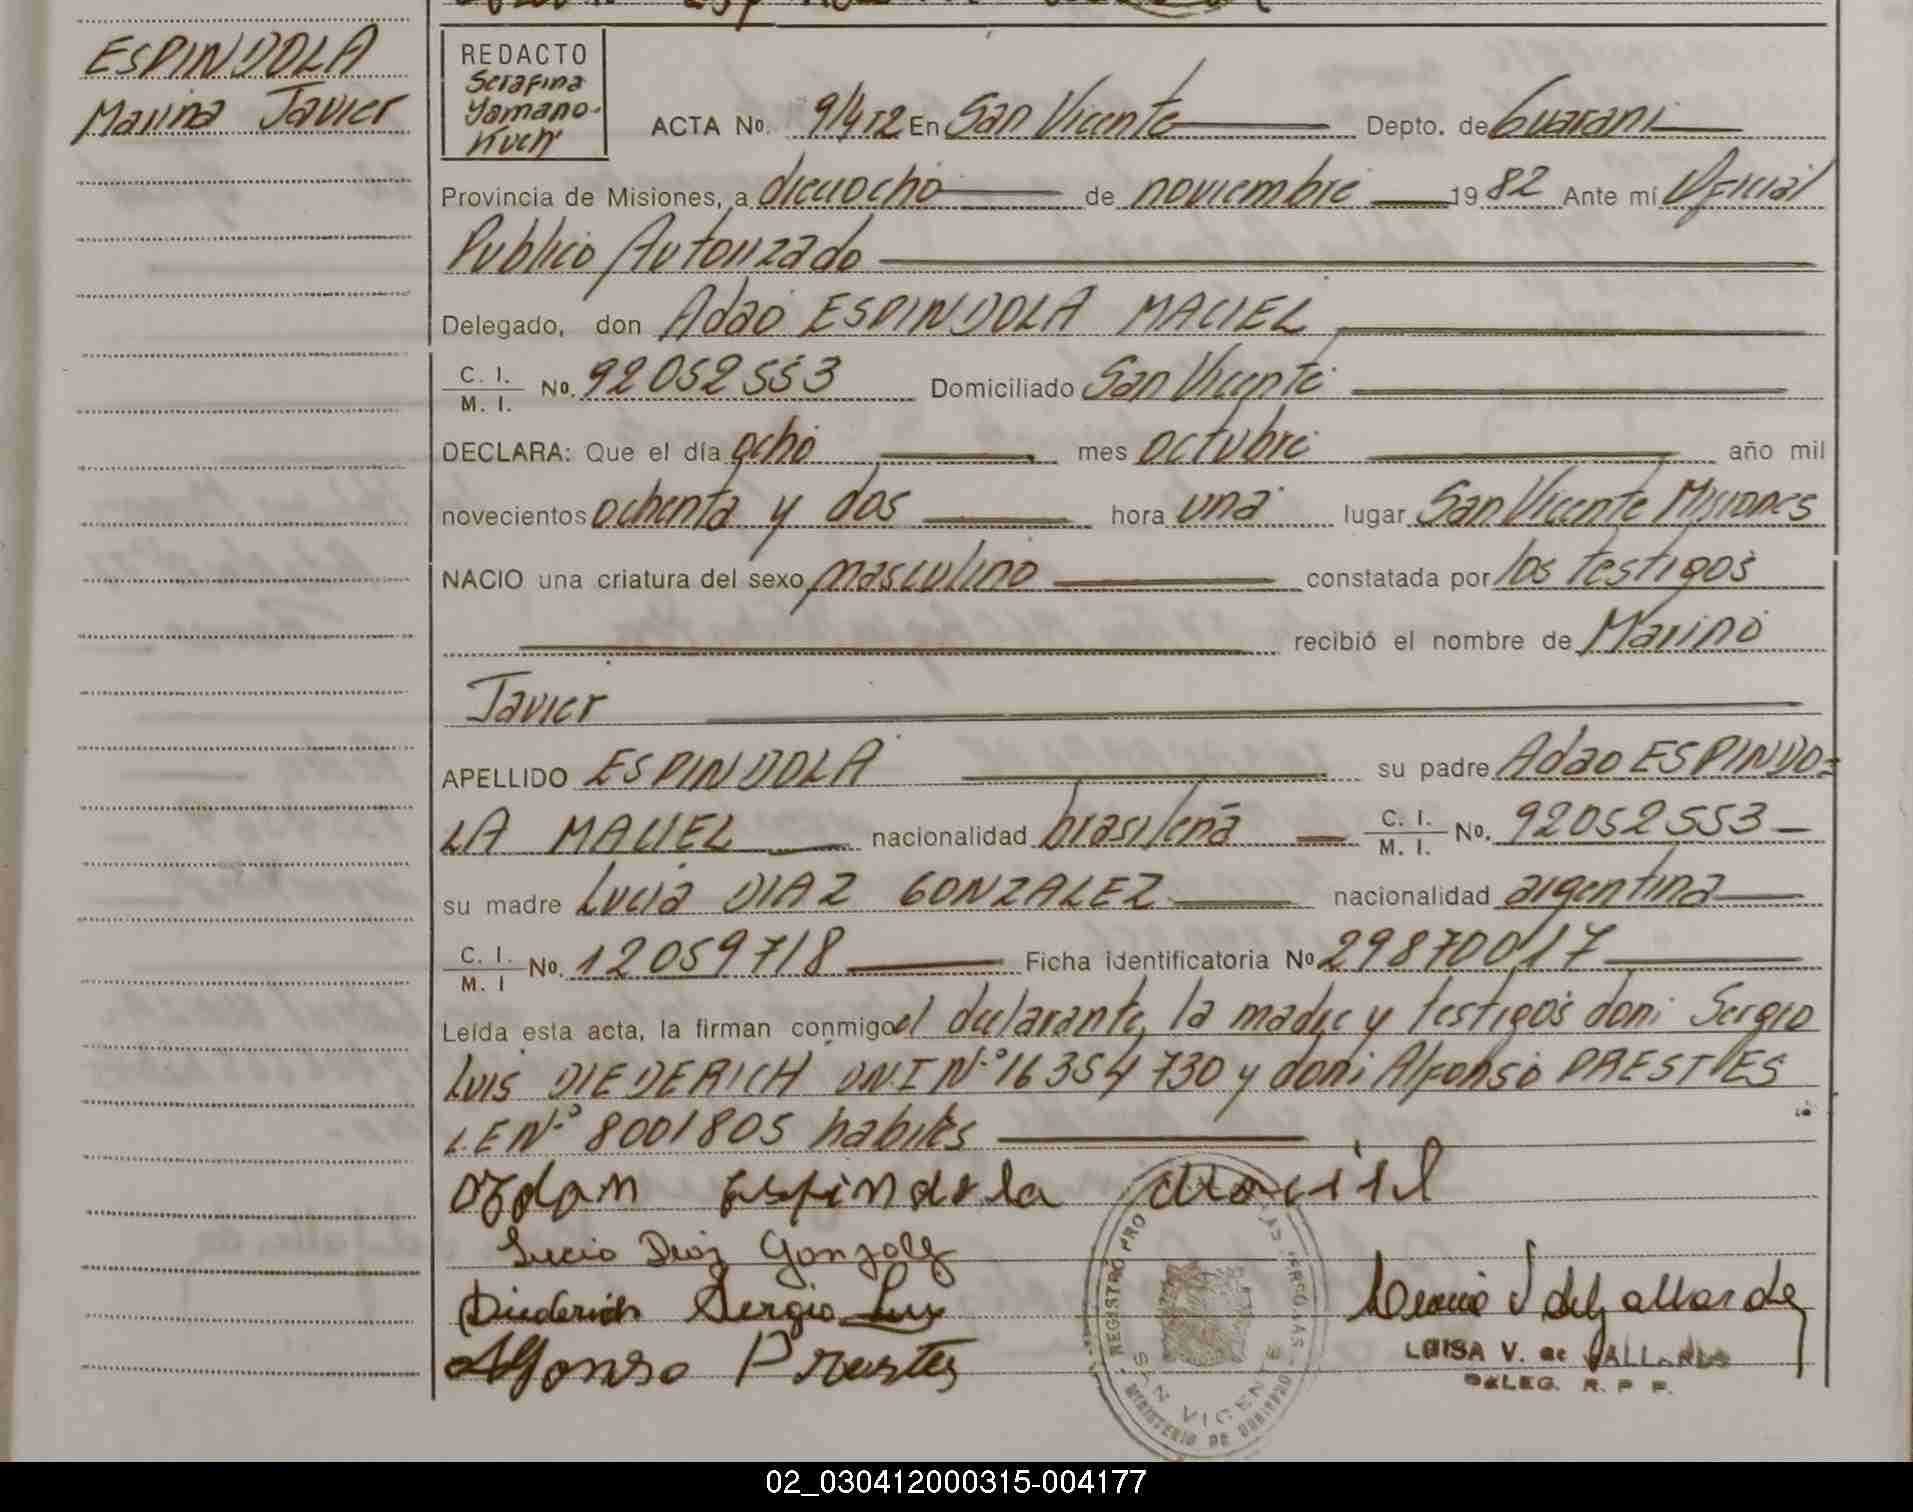 ESPINDOLA
Marino Javier
REDACTO
Serafina
Yamano-
Kuch
ACTA No. 912 En San Vicente Depto. de Guarani
Provincia de Misiones, a dieciocho de noviembre 1982 Ante mí Oficial
Publico Autorizado
Delegado, don Adao ESPINDOLA MACIEL
C. I. / M. I. No. 92052553 Domiciliado San Vicente
DECLARA: Que el día ocho mes octubre año mil
novecientos ochenta y dos hora una lugar San Vicente Misiones
NACIO una criatura del sexo masculino constatada por los testigos
recibió el nombre de Marino
Javier
APELLIDO ESPINDOLA su padre Adao ESPINDO=
LA MACIEL nacionalidad brasileña C. I. / M. I. No. 92052553
su madre Lucia DIAZ GONZALEZ nacionalidad argentina
C. I. / M. I No. 12059718 Ficha identificatoria No 29870017
Leída esta acta, la firman conmigo el declarante, la madre y testigos don: Sergio
Luis DIEDERICH D.N.I Nº 16354730 y don: Alfonso PRESTES
L.E Nº 8001805 habiles
Espindola Maciel
Lucia Diaz Gonzalez
Diederich Sergio Luis
Alfonso Prestes
REGISTRO PRO DE LAS PERSONAS
SAN VICENTE
MINISTERIO DE GOBIERNO
LUISA V. de GALLARDO
DELEG. R. P. P.
02_030412000315-004177